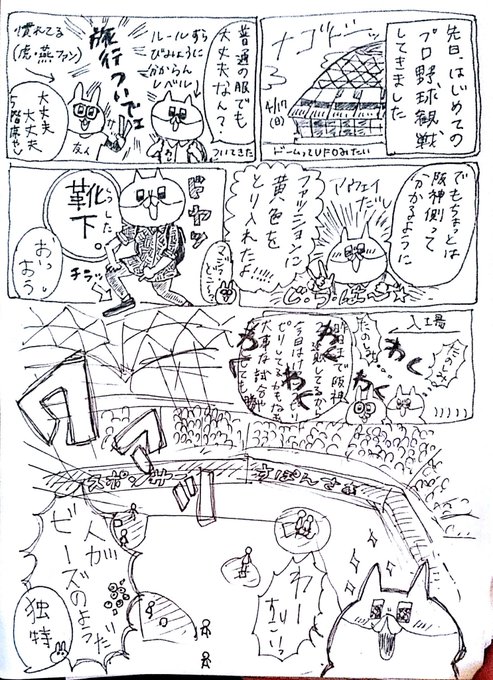 先日、はじめての
プロ野球観戦
してきました
ナゴヤドーム
4/17
(日)
ドームってUFOみたい
普通の服でも
大丈夫なん？
ついてきた
ルールすら
びみょうに
わからん
レベル
旅行ついでに
慣れてる
(虎・燕ファン)
大丈夫
大丈夫
5階席やし
友人
でもちょっとは
阪神側って
わかるように
アウェイだし
じゃじゃーん
ファッションに
黄色を
とり入れたよ!!!
ドヤッ
くつした
靴
下。
チラッ
おぅ…
おう
入場
たのしみ
たのしみ
わく
わく
わく
わく
昨日まで阪神
連敗してるから
大事な試合や
ワアーッ
スポンサー
すぽんさあ
わー
すごいっ
人が
ビーズのようだ
独特